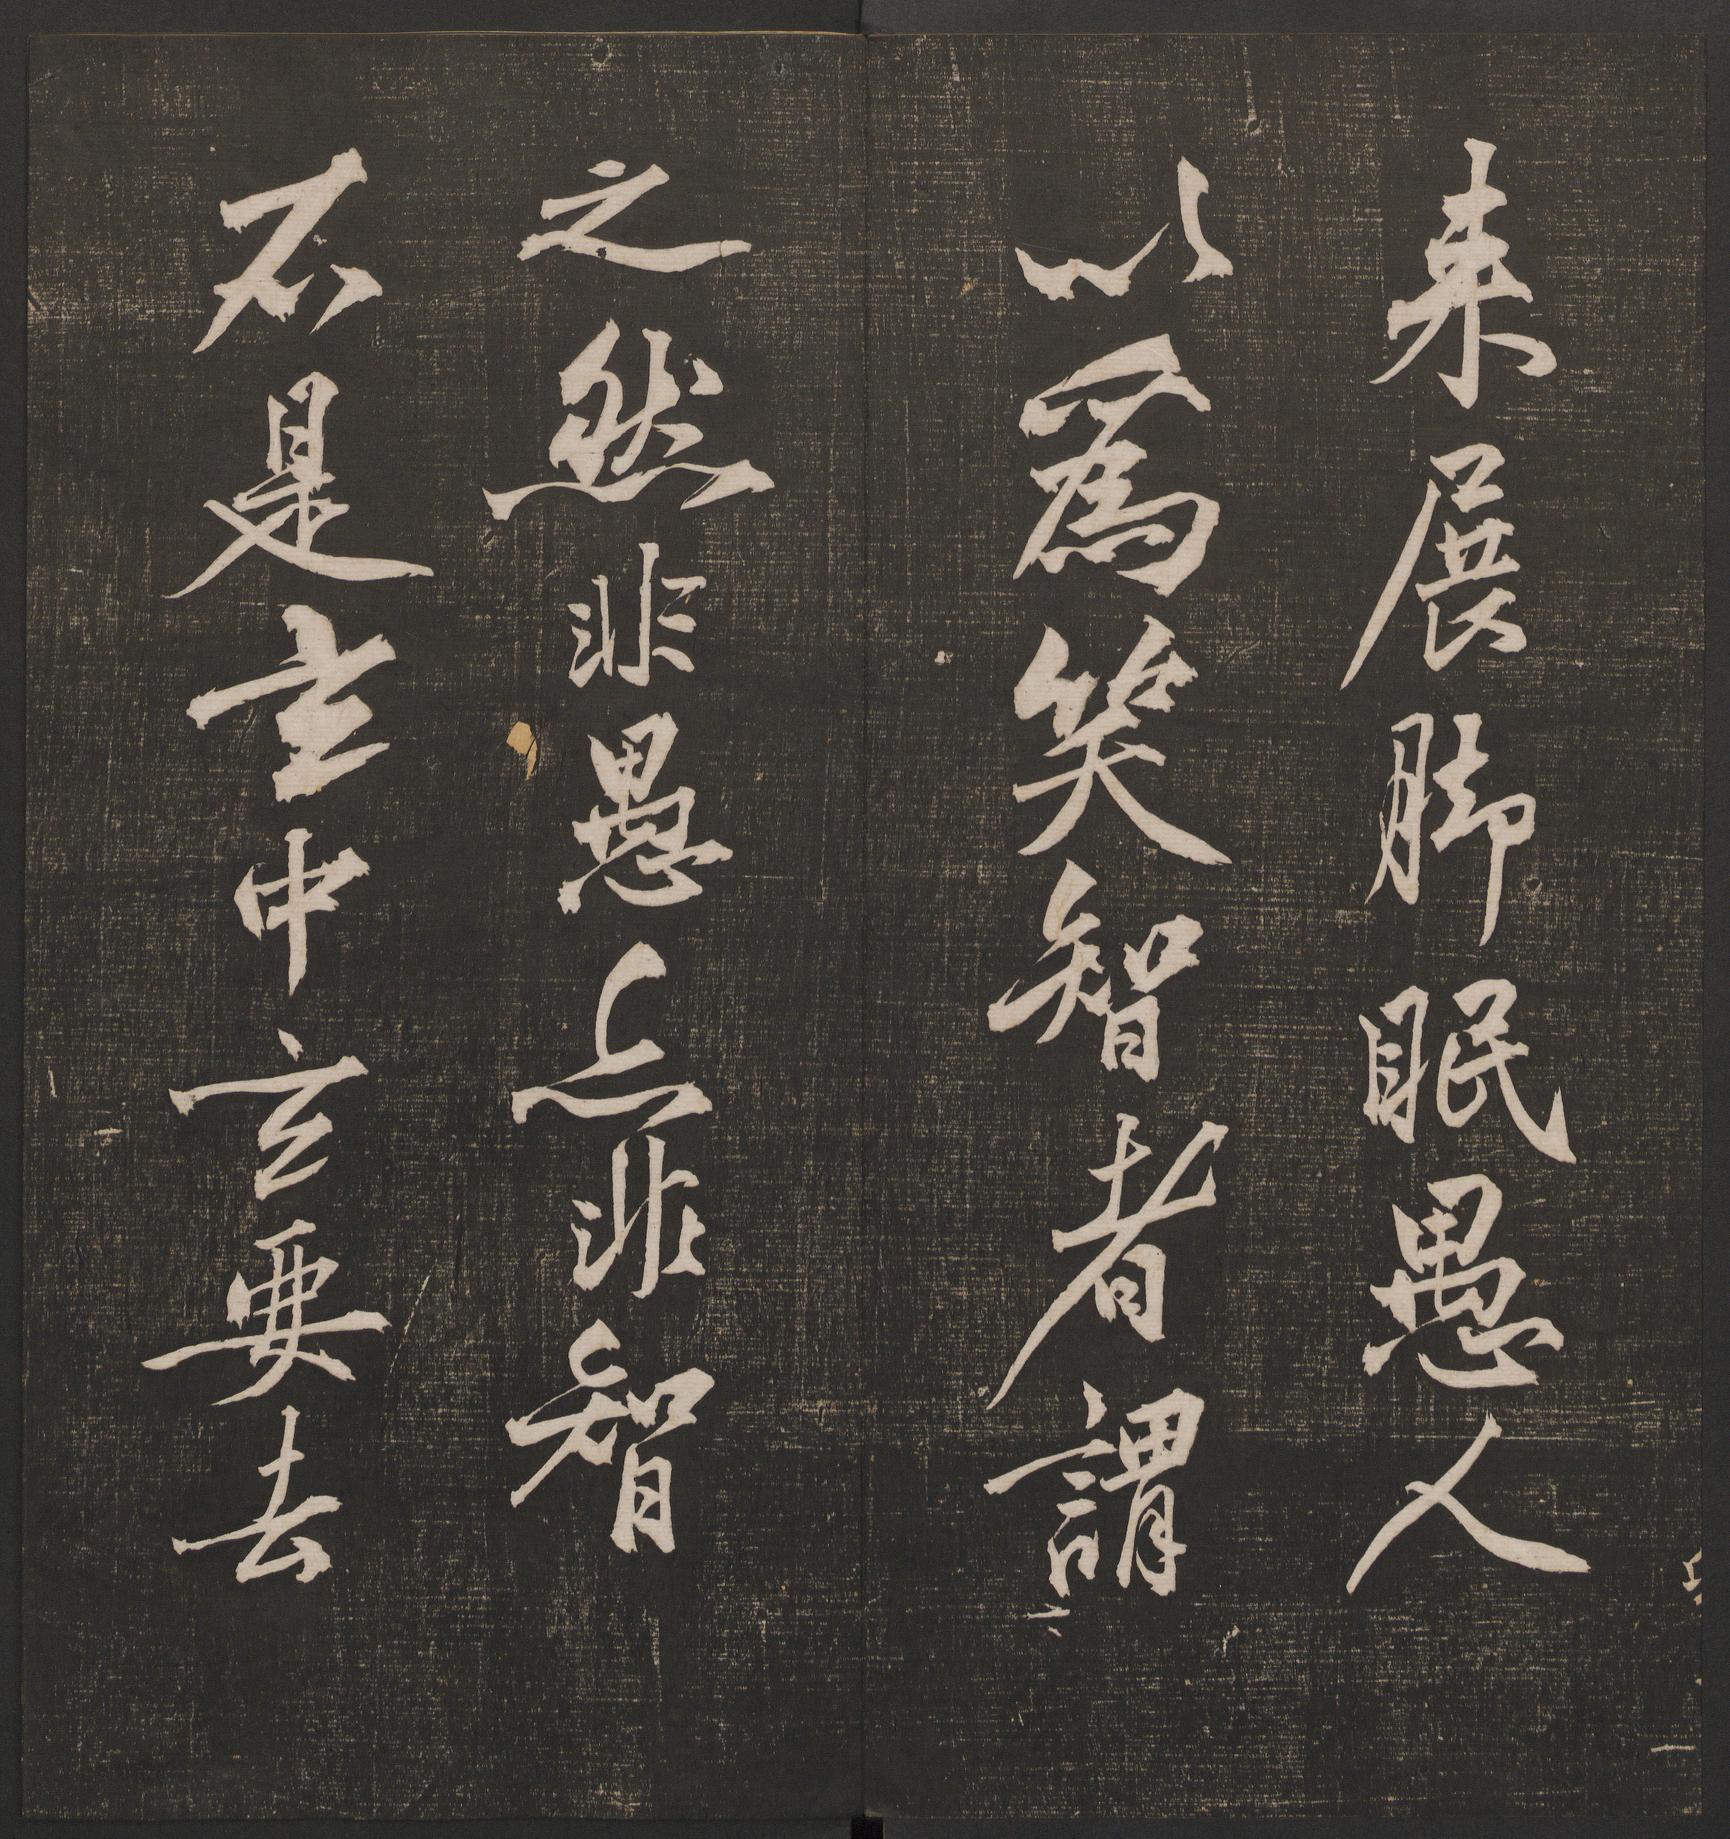 来展脚眠愚人
以爲笑智者謂
之然非愚亦非智
不是玄中玄要去